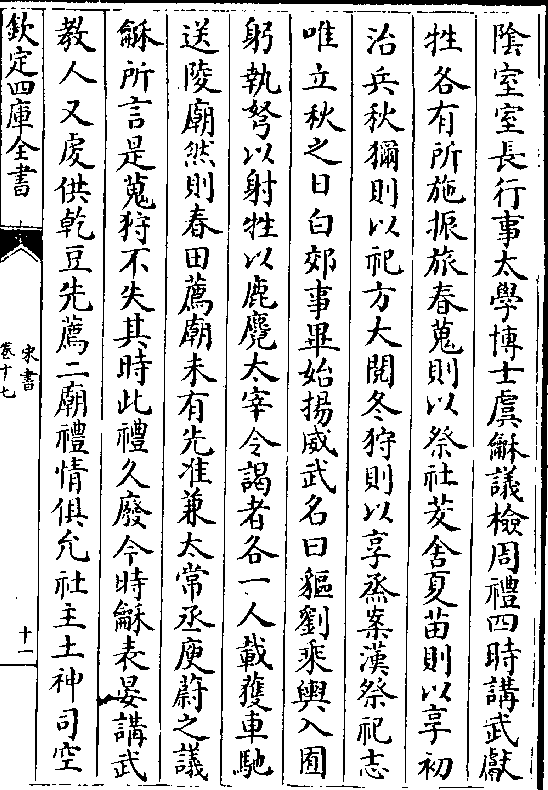 陰室室長行事太學博士虞龢議檢周禮四時講武獻
牲各有所施振旅春蒐則以祭社茇舍夏苗則以享礿
治兵秋獮則以祀方大閱冬狩則以享烝案漢祭祀志
唯立秋之日白郊事畢始揚威武名曰貙劉乘輿入囿
躬執弩以射牲以鹿麑太宰令謁者各一人載獲車馳
送陵廟然則春田薦廟未有先准兼太常丞庾蔚之議
龢所言是蒐狩不失其時此禮久廢今時龢表晏講武
教人又虔供乾豆先薦二廟禮情俱允社主土神司空
欽定四庫全書
宋書
卷十七
十一